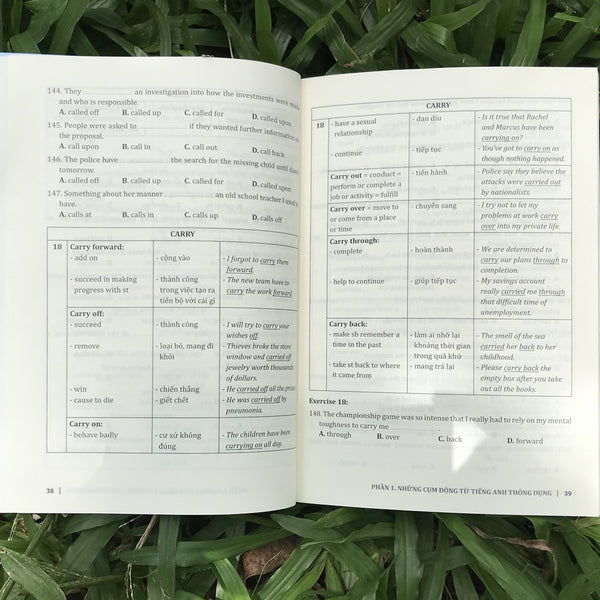 144. They ________ an investigation into how the investments were made
and who is responsible.
A. called off B. called up C. called for D. called upon
145. People were asked to ________ if they wanted further information on
the proposal.
A. call upon B. call in C. call out D. call back
146. The police have ________ the search for the missing child until dawn
tomorrow.
A. called off B. called up C. called for D. called upon
147. Something about her manner ________ an old school teacher I used to
have.
A. calls at B. calls in C. calls up D. calls off
CARRY
18 Carry forward:
- add on - cộng vào - I forgot to carry them
forward.
- succeed in making - thành công - The new team have to
progress with st trong việc tạo ra carry the work forward.
tiến bộ với cái gì
Carry off:
- succeed - thành công - I will try to carry your
wishes off.
- remove - loại bỏ, mang đi - Thieves broke the store
khỏi window and carried off
jewelry worth thousands
of dollars.
- win - chiến thắng - He carried off all the prizes.
- cause to die - giết chết - He was carried off by
pneumonia.
Carry on:
- behave badly - cư xử không - The children have been
đúng carrying on all day.
38 |
CARRY
18 - have a sexual - dan díu - Is it true that Rachel
relationship and Marcus have been
carrying on?
- continue - tiếp tục - You've got to carry on as
though nothing happened.
Carry out = conduct = - tiến hành - Police say they believe the
perform or complete a attacks were carried out
job or activity = fulfill by nationalists.
Carry over = move to - chuyển sang - I try not to let my
or come from a place problems at work carry
or time over into my private life.
Carry through:
- complete - hoàn thành - We are determined to
carry our plans through to
completion.
- help to continue - giúp tiếp tục - My savings account
really carried me through
that difficult time of
unemployment.
Carry back:
- make sb remember a - làm ai nhớ lại - The smell of the sea
time in the past khoảng thời gian carried her back to her
trong quá khứ childhood.
- take st back to where - mang trả lại - Please carry back the
it came from empty box after you take
out all the books.
Exercise 18:
148. The championship game was so intense that I really had to rely on my mental
toughness to carry me ________
A. through B. over C. back D. forward
PHẦN 1. NHỮNG CỤM ĐỘNG TỪ TIẾNG ANH THÔNG DỤNG | 39